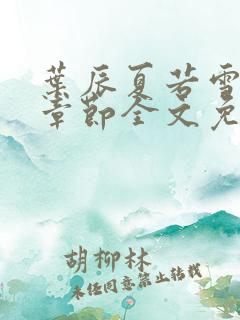 葉辰夏若雪
章節全文免
胡柳林
未经同意禁止转载